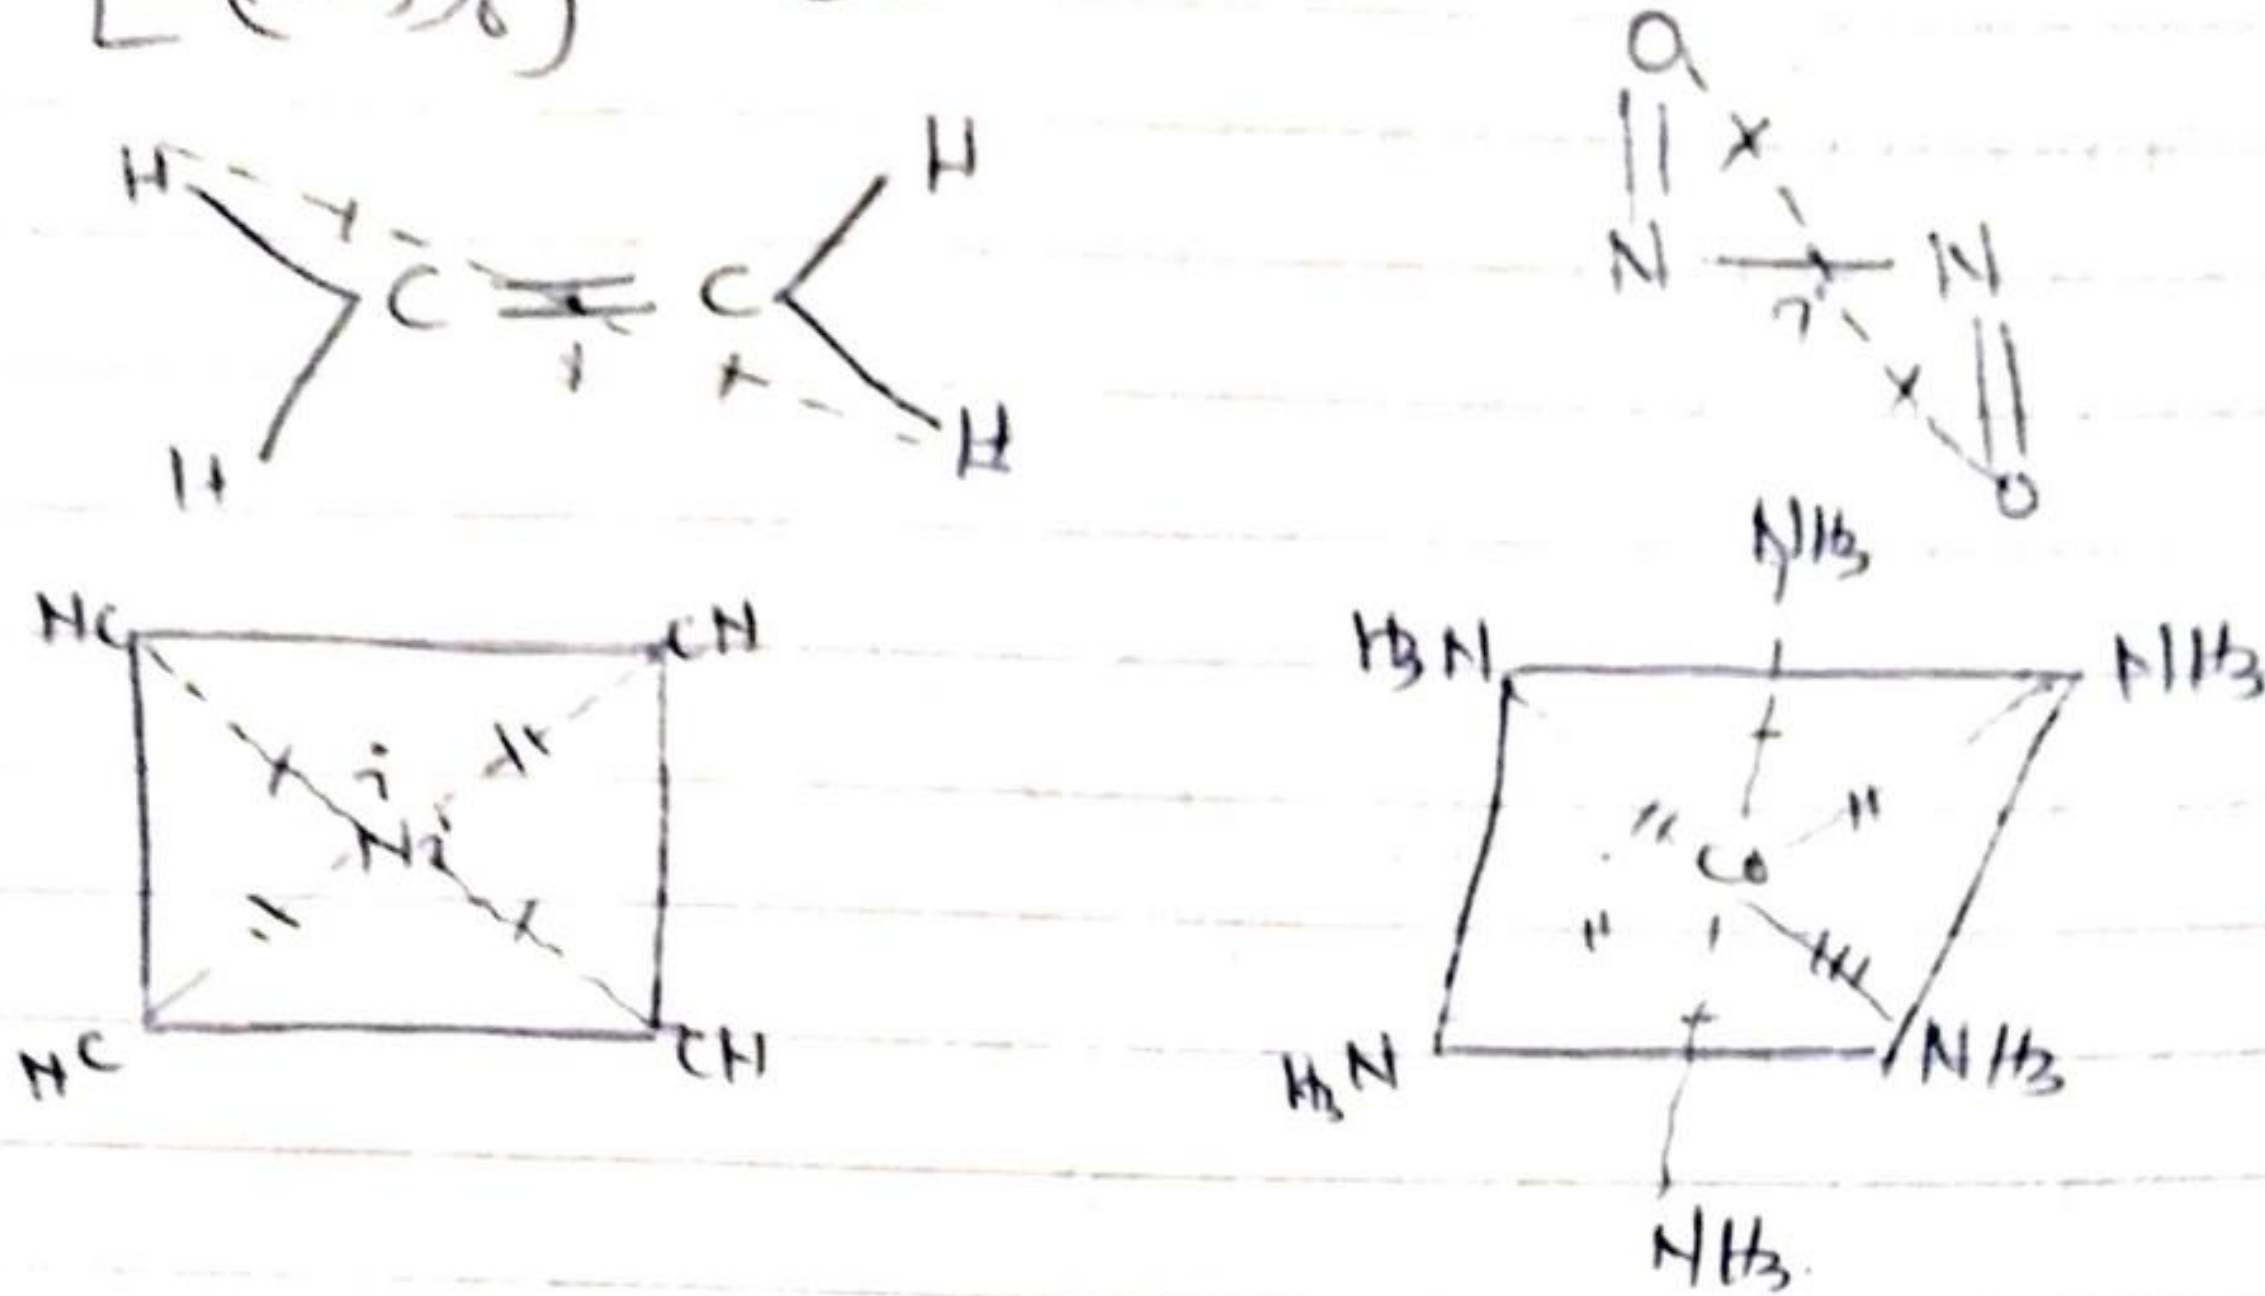 H H
C = C
H H
O
N — N
i
O
NC CN
i
Ni
NC CN
NH3
H3N NH3
Co
H3N NH3
NH3